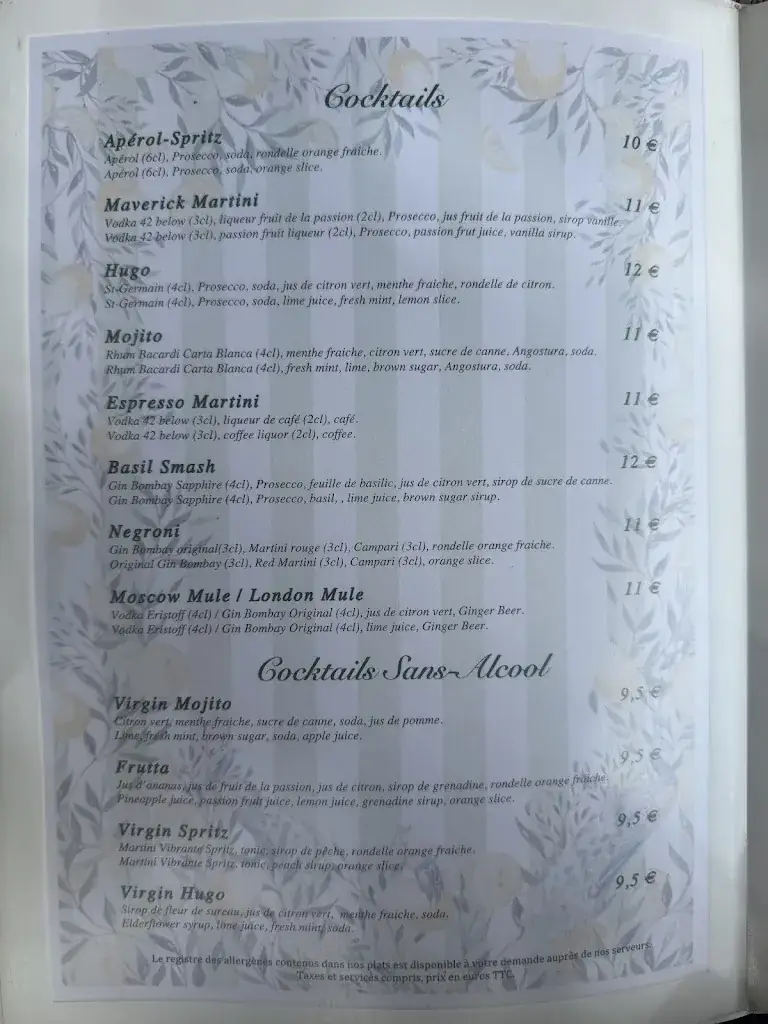 Cocktails
Apérol-Spritz 10 €
Apérol (6cl), Prosecco, soda, rondelle orange fraiche.
Apérol (6cl), Prosecco, soda, orange slice.
Maverick Martini 11 €
Vodka 42 below (3cl), liqueur fruit de la passion (2cl), Prosecco, jus fruit de la passion, sirop vanille.
Vodka 42 below (3cl), passion fruit liqueur (2cl), Prosecco, passion frut juice, vanilla sirup.
Hugo 12 €
St-Germain (4cl), Prosecco, soda, jus de citron vert, menthe fraiche, rondelle de citron.
St-Germain (4cl), Prosecco, soda, lime juice, fresh mint, lemon slice.
Mojito 11 €
Rhum Bacardi Carta Blanca (4cl), menthe fraiche, citron vert, sucre de canne, Angostura, soda.
Rhum Bacardi Carta Blanca (4cl), fresh mint, lime, brown sugar, Angostura, soda.
Espresso Martini 11 €
Vodka 42 below (3cl), liqueur de café (2cl), café.
Vodka 42 below (3cl), coffee liquor (2cl), coffee.
Basil Smash 12 €
Gin Bombay Sapphire (4cl), Prosecco, feuille de basilic, jus de citron vert, sirop de sucre de canne.
Gin Bombay Sapphire (4cl), Prosecco, basil, , lime juice, brown sugar sirup.
Negroni 11 €
Gin Bombay original(3cl), Martini rouge (3cl), Campari (3cl), rondelle orange fraiche.
Original Gin Bombay (3cl), Red Martini (3cl), Campari (3cl), orange slice.
Moscow Mule / London Mule 11 €
Vodka Eristoff (4cl) / Gin Bombay Original (4cl), jus de citron vert, Ginger Beer.
Vodka Eristoff (4cl) / Gin Bombay Original (4cl), lime juice, Ginger Beer.
Cocktails Sans-Alcool
Virgin Mojito 9,5 €
Citron vert, menthe fraiche, sucre de canne, soda, jus de pomme.
Lime, fresh mint, brown sugar, soda, apple juice.
Frutta 9,5 €
Jus d'ananas, jus de fruit de la passion, jus de citron, sirop de grenadine, rondelle orange fraiche.
Pineapple juice, passion fruit juice, lemon juice, grenadine sirup, orange slice.
Virgin Spritz 9,5 €
Martini Vibrante Spritz, tonic, sirop de pêche, rondelle orange fraiche.
Martini Vibrante Spritz, tonic, peach sirup, orange slice.
Virgin Hugo 9,5 €
Sirop de fleur de sureau, jus de citron vert, menthe fraiche, soda.
Elderflower syrup, lime juice, fresh mint, soda.
Le registre des allergènes contenus dans nos plats est disponible à votre demande auprès de nos serveurs.
Taxes et services compris, prix en euros TTC.